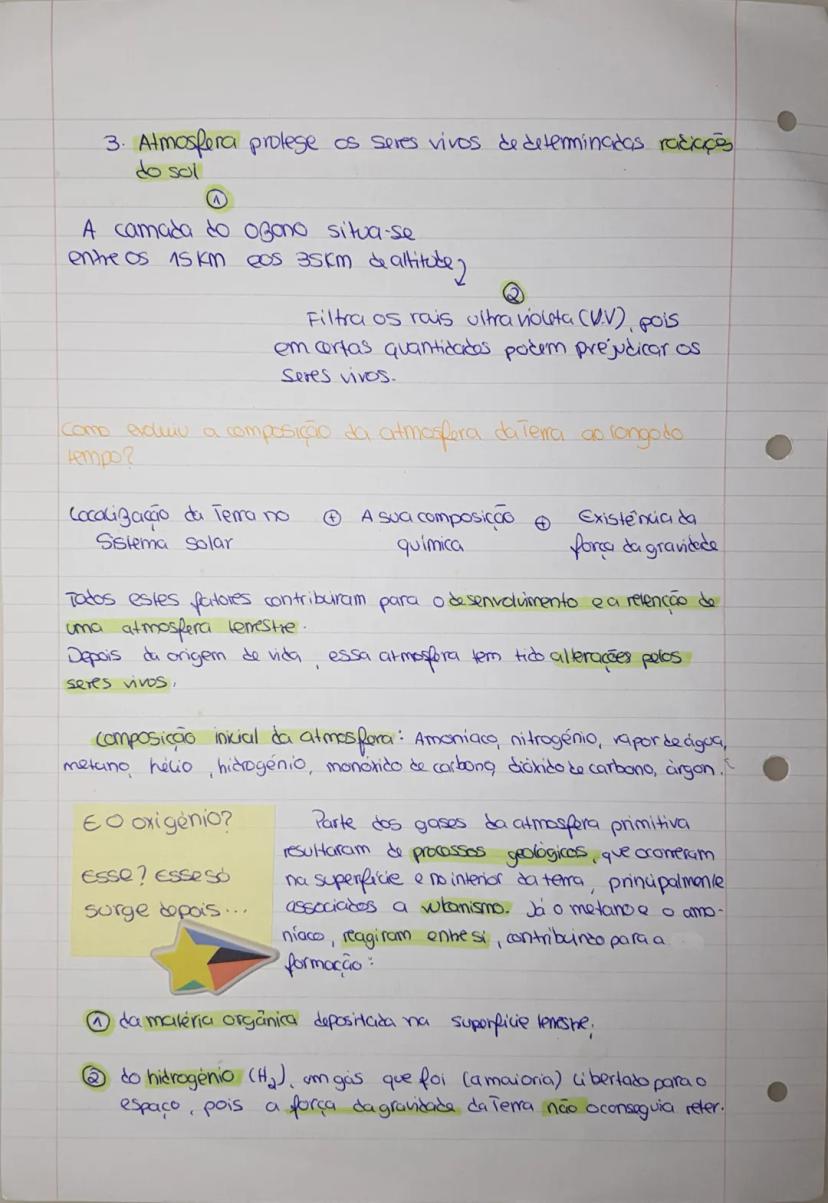 3. Atmosfera protege os seres vivos de determinadas radiações
do sol
①
A camada do ozono situa-se
entre os 15km e os 35km de altitude
②
Filtra os rais ultravioleta (U.V), pois
em certas quantidades podem prejudicar os
seres vivos.
Como evoluiu a composição da atmosfera da Terra ao longo do
tempo?
Localização da Terra no ⊕ A sua composição ⊕ Existência da
Sistema solar química força da gravidade
Todos estes fatores contribuiram para o desenvolvimento e a retenção de
uma atmosfera terrestre.
Depois da origem de vida, essa atmosfera tem tido alterações pelos
seres vivos.
Composição inicial da atmosfera: Amoníaco, nitrogénio, vapor de água,
metano, hélio, hidrogénio, monóxido de carbono, dióxido de carbono, árgon.
E O oxigénio?
Esse? Esse só
surge depois...
Parte dos gases da atmosfera primitiva
resultaram de processos geológicos, que ocorreram
na superfície e no interior da terra, principalmente
associados a vulcanismo. Já o metano e o amo-
níaco, reagiram entre si, contribuindo para a
formação:
① da matéria orgânica depositada na superfície terrestre;
② do hidrogénio (H₂), um gás que foi (a maioria) libertado para o
espaço, pois a força da gravidade da Terra não o conseguia reter.